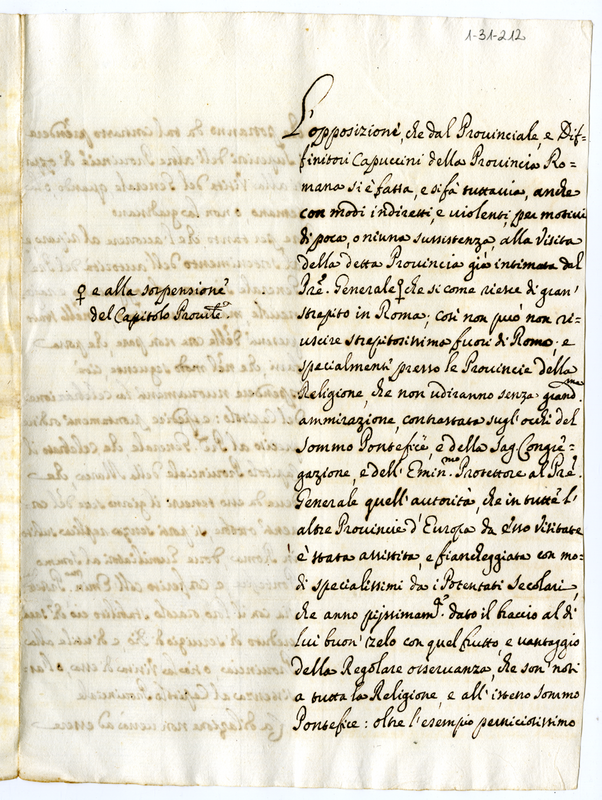 1-31-212
L'opposizione, che dal Prouinciale, e Dif=
finitori Capuccini della Prouincia Ro=
mana si è fatta, e si fà tuttauia, anche
con modi indiretti, e uiolenti per motiui
di poca, o niuna sussistenza alla Visita
della detta Prouincia già intimata dal
Pre. Generale ♀ che si come riesce di gran'
strepito in Roma; così non può non ri=
uscire strepitosissima fuori di Roma; e
specialmente presso le Prouincie della
Religione, che non udiranno senza grand.ma
ammirazione, contrastata sugl'occhi del
sommo Pontefice, e della Sag. Congre=
gazione, e dell'Emin.mo Protettore al Pre.
Generale quell'autorità, che in tutte l'
altre Prouincie d'Europa da esso Visitate
è stata assistita, e fiancheggiata con mo=
di specialissimi da i Potentati secolari,
che anno pijssimam.te dato il braccio al di
lui buon' zelo con quel frutto, e uantaggio
della Regolare osseruanza, che son' noti
a tutta la Religione, e all'istesso sommo
Pontefice: oltre l'esempio perniciosissimo
♀ e alla sospensione
del Capitolo Prouin.le